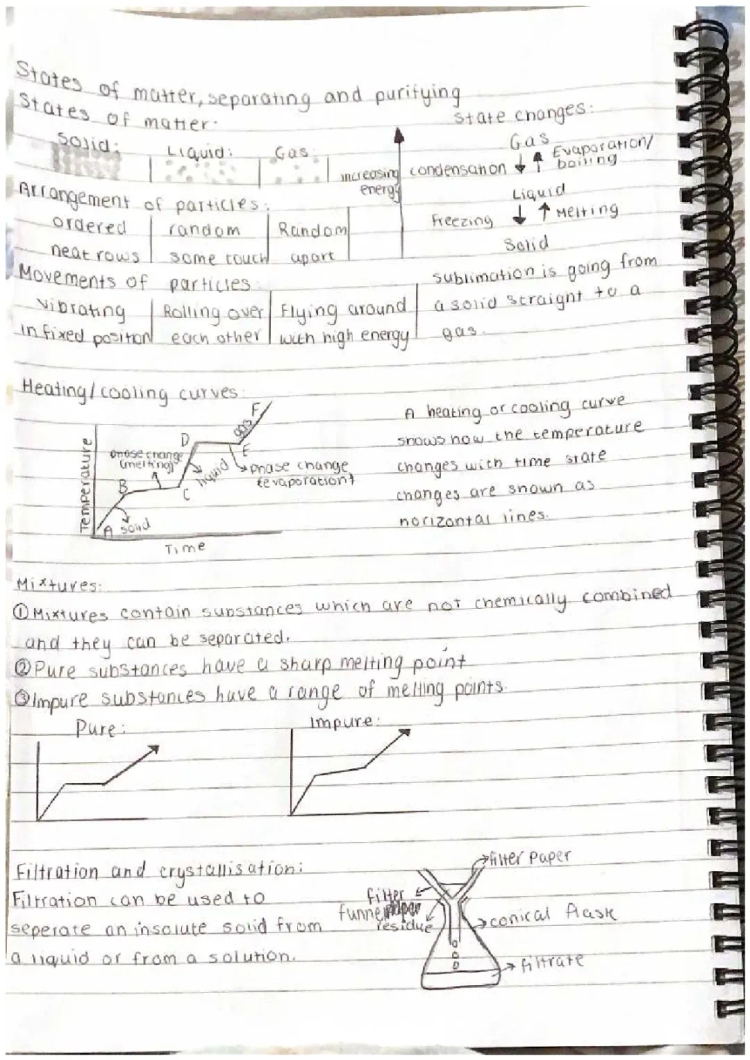 States of matter, separating and purifying
States of matter:
Solid:
Liquid:
Gas:
Arrangement of particles:
ordered
neat rows
random
some touch
Random
apart
Movements of particles:
vibrating
in fixed position
Rolling over
each other
Flying around
with high energy
State changes:
increasing
energy
Gas
condensation
Evaporation/
boiling
Liquid
Freezing
Melting
Solid
sublimation is going from
a solid straight to a
gas.
Heating/cooling curves:
Temperature
Time
A
solid
B
phase change
(melting)
C
liquid
D
E
phase change
(evaporation)
gas
F
A heating or cooling curve
shows how the temperature
changes with time state
changes are shown as
horizontal lines.
Mixtures:
① Mixtures contain substances which are not chemically combined
and they can be separated.
② Pure substances have a sharp melting point
③ Impure substances have a range of melting points.
Pure:
Impure:
Filtration and crystallisation:
Filtration can be used to
seperate an insolute solid from
a liquid or from a solution.
filter paper
filter
funnel
residue
conical flask
filtrate